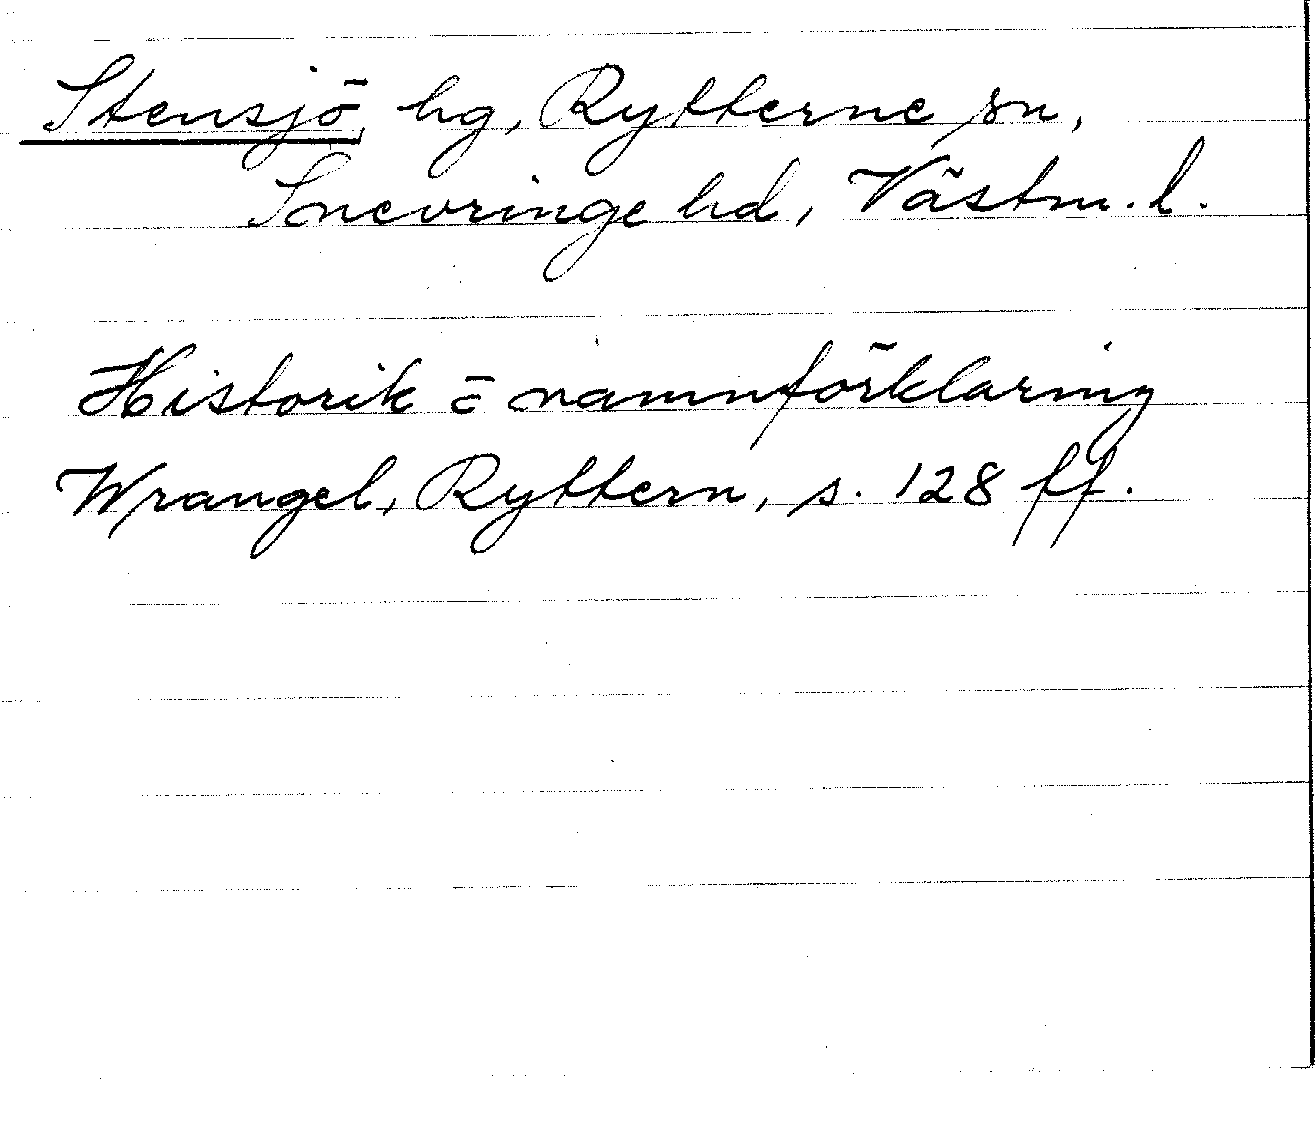 Stensjö, hg, Rytterne sn,
Snevringe hd, Västm. l.
Historik o namnförklaring
Wrangel, Ryttern, s. 128 ff.